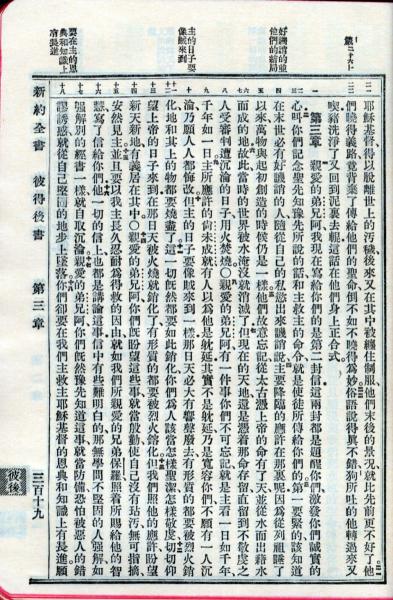 箴二十六11
好譏誚的並
他們的結局
主的日子要
像賊來到
要在主的恩
典和知識上
有長進
耶穌基督、得以脫離世上的污穢後來又在其中被纏住制服他們末後的景況就比先前更不好了他
們曉得義路竟背棄了傳給他們的聖命倒不如不曉得為妙俗語說得真不錯狗所吐的他轉過來又
喫豬洗淨了又回到泥裏去輥這話在他們身上正合式
第三章 親愛的弟兄阿我現在寫給你們的是第二封信這兩封都是題醒你們激發你們誠實的
心叫你們記念聖先知豫先所說的話和主救主的命令就是使徒所傳給你們的第一要緊的該知道
在末世必有好譏誚的人隨從自己的私慾出來譏誚說主要降臨的應許在那裏呢因為從列祖睡了
以來萬物與起初創造的時候仍是一樣他們故意忘記從太古憑上帝的命有了天並從水而出藉水
而成的地故此當時的世界被水淹沒就消滅了但現在的天地還是憑着那命存留直留到不敬虔之
人受審判遭沉淪的日子用火焚燒○親愛的弟兄阿有一件事你們不可忘記就是主看一日如千年
千年如一日主所應許的尚未成就有人以為他是躭延其實不是躭延乃是寬容你們不願有一人沉
淪乃願人人都悔改但主的日子要像賊來到一樣那日天必大有響聲廢去有形質的都要被烈火銷
化地和其上的物都要燒盡了這一切既然都要如此銷化你們為人該當怎樣聖潔怎樣敬虔切切仰
望上帝的日子來到在那日天被火燒就銷化了有形質的都要被烈火鎔化但我們照他的應許盼望
新天新地有義居在其中○親愛的弟兄阿你們既盼望這些事就當殷勤使自己沒有玷污無可指摘
安然見主並且要以我主長久忍耐為得救的因由就如我們所親愛的兄弟保羅照着所賜給他的智
慧寫了信給你們他一切的信上也都是講論這事信中有些難明白的那無學問不堅固的人強解如
強解別的經書一樣就自取沉淪親愛的弟兄你們既然豫先知道這事就當防備恐怕被惡人的錯
謬誘惑就從自己堅固的地步上墜落你們卻要在我們主救主耶穌基督的恩典和知識上有長進願
新約全書 彼得後書 第三章 三百十九
彼後